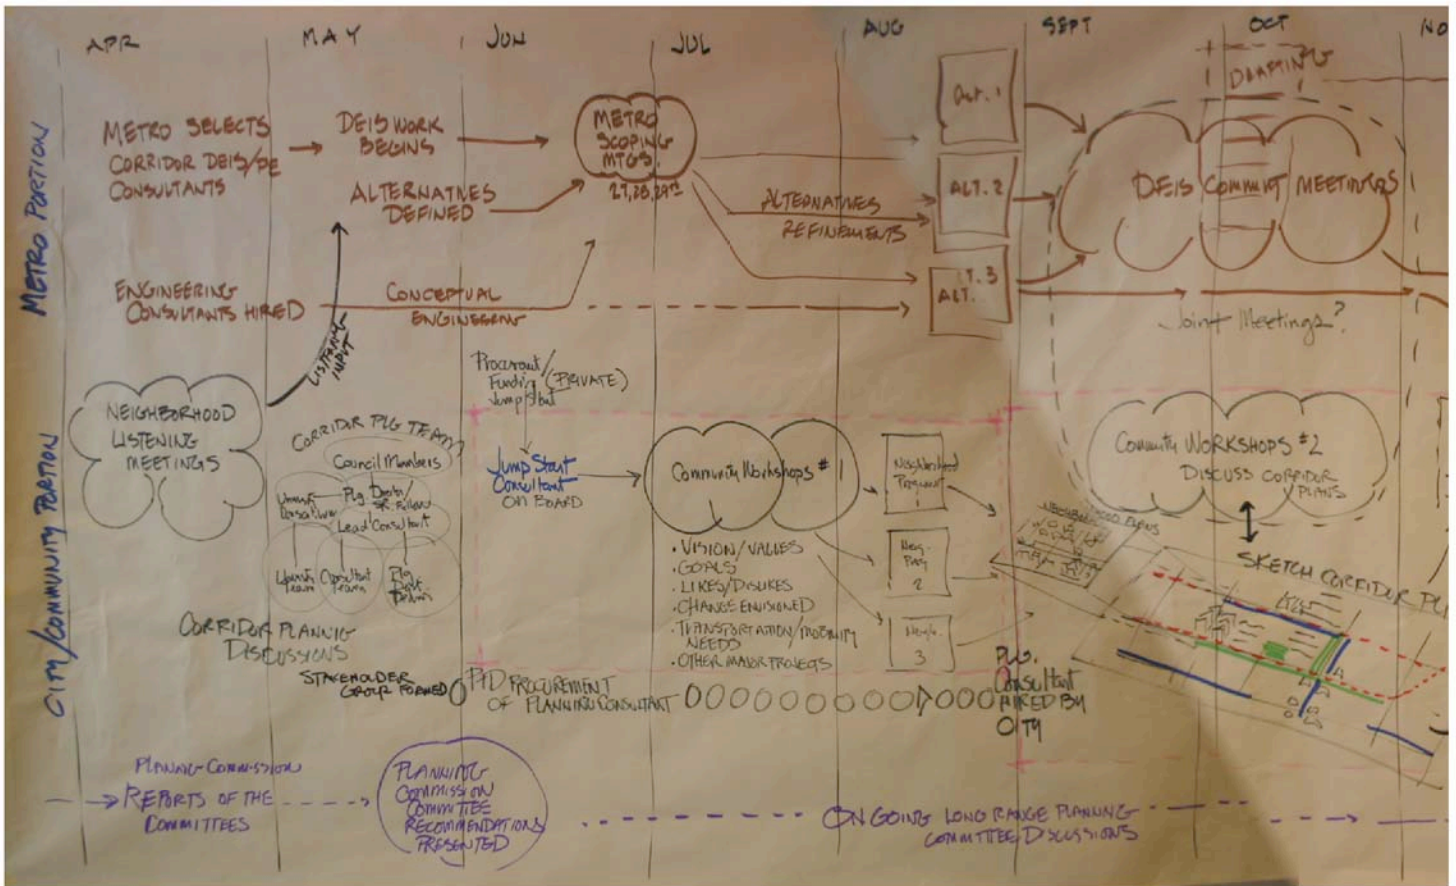 APR
MAY
JUN
JUL
AUG
SEPT
OCT
NO
METRO PORTION
METRO SELECTS
CORRIDOR DEIS/PE
CONSULTANTS
DEIS WORK
BEGINS
ALTERNATIVES
DEFINED
METRO
SCOPING
MTGS.
27, 28, 29TH
ALTERNATIVES
REFINEMENTS
ALT. 1
ALT. 2
ALT. 3
DRAFTING
DEIS COMMUNT MEETINGS
ENGINEERING
CONSULTANTS HIRED
CONCEPTUAL
ENGINEERING
Joint Meetings?
LISTENING
INPUT
CITY/COMMUNITY PORTION
NEIGHBORHOOD
LISTENING
MEETINGS
CORRIDOR PLG TEAM
Council Members
Lead Consultant
Consultant
Team
CORRIDOR PLANNING
DISCUSSIONS
STAKEHOLDER
GROUP FORMED
Funding (PRIVATE)
Jump Start
Jump Start
Consultant
ON BOARD
Community Workshops #1
• VISION/VALUES
• GOALS
• LIKES/DISLIKES
• CHANGE ENVISIONED
• TRANSPORTATION/MOBILITY
NEEDS
• OTHER MAJOR PROJECTS
2
3
PROCUREMENT
OF PLANNING CONSULTANT
PLG.
CONSULTANT
HIRED BY
CITY
Community WORKSHOPS #2
DISCUSS CORRIDOR
PLANS
SKETCH CORRIDOR
PLANNING COMMISSION
REPORTS OF THE
COMMITTEES
PLANNING
COMMISSION
COMMITTEE
RECOMMENDATIONS
PRESENTED
ON GOING LONG RANGE PLANNING
COMMITTEE DISCUSSIONS